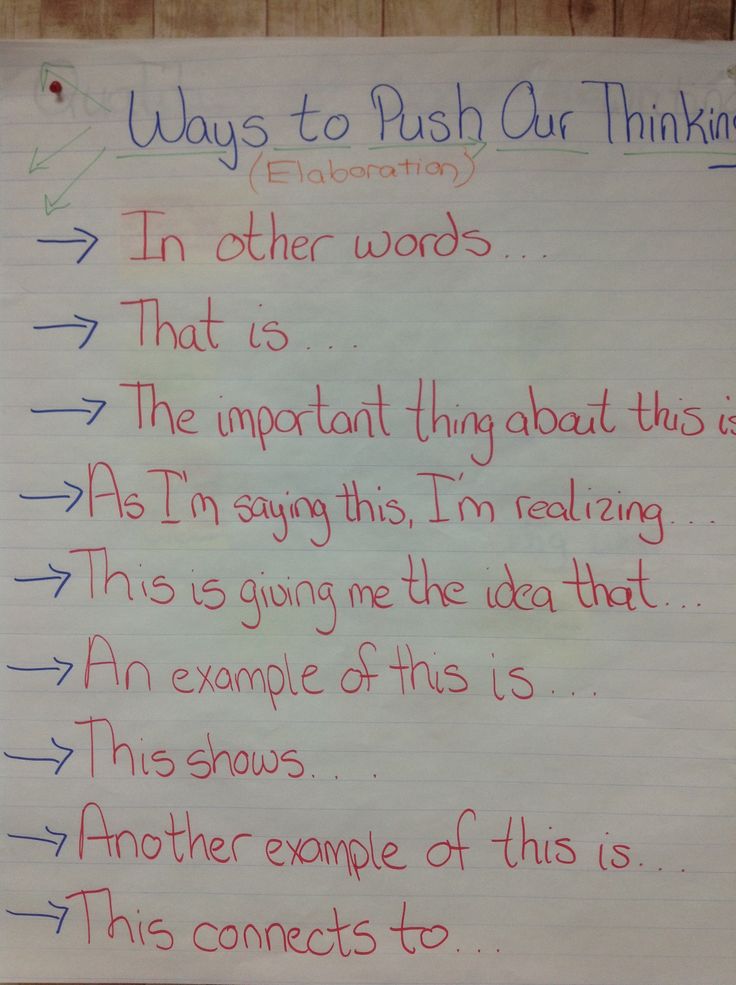 Ways to Push Our Thinkin
(Elaboration)
→ In other words...
→ That is...
→ The important thing about this is
→ As I'm saying this, I'm realizing...
→ This is giving me the idea that...
→ An example of this is...
→ This shows....
→ Another example of this is...
→ This connects to...